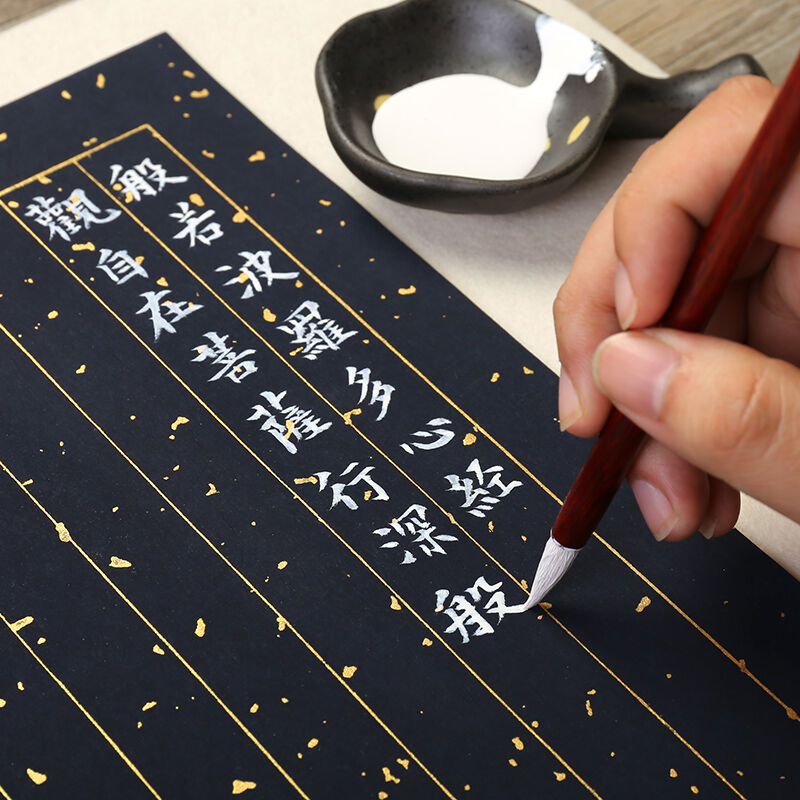 般若波羅多心経
觀自在菩薩行深般